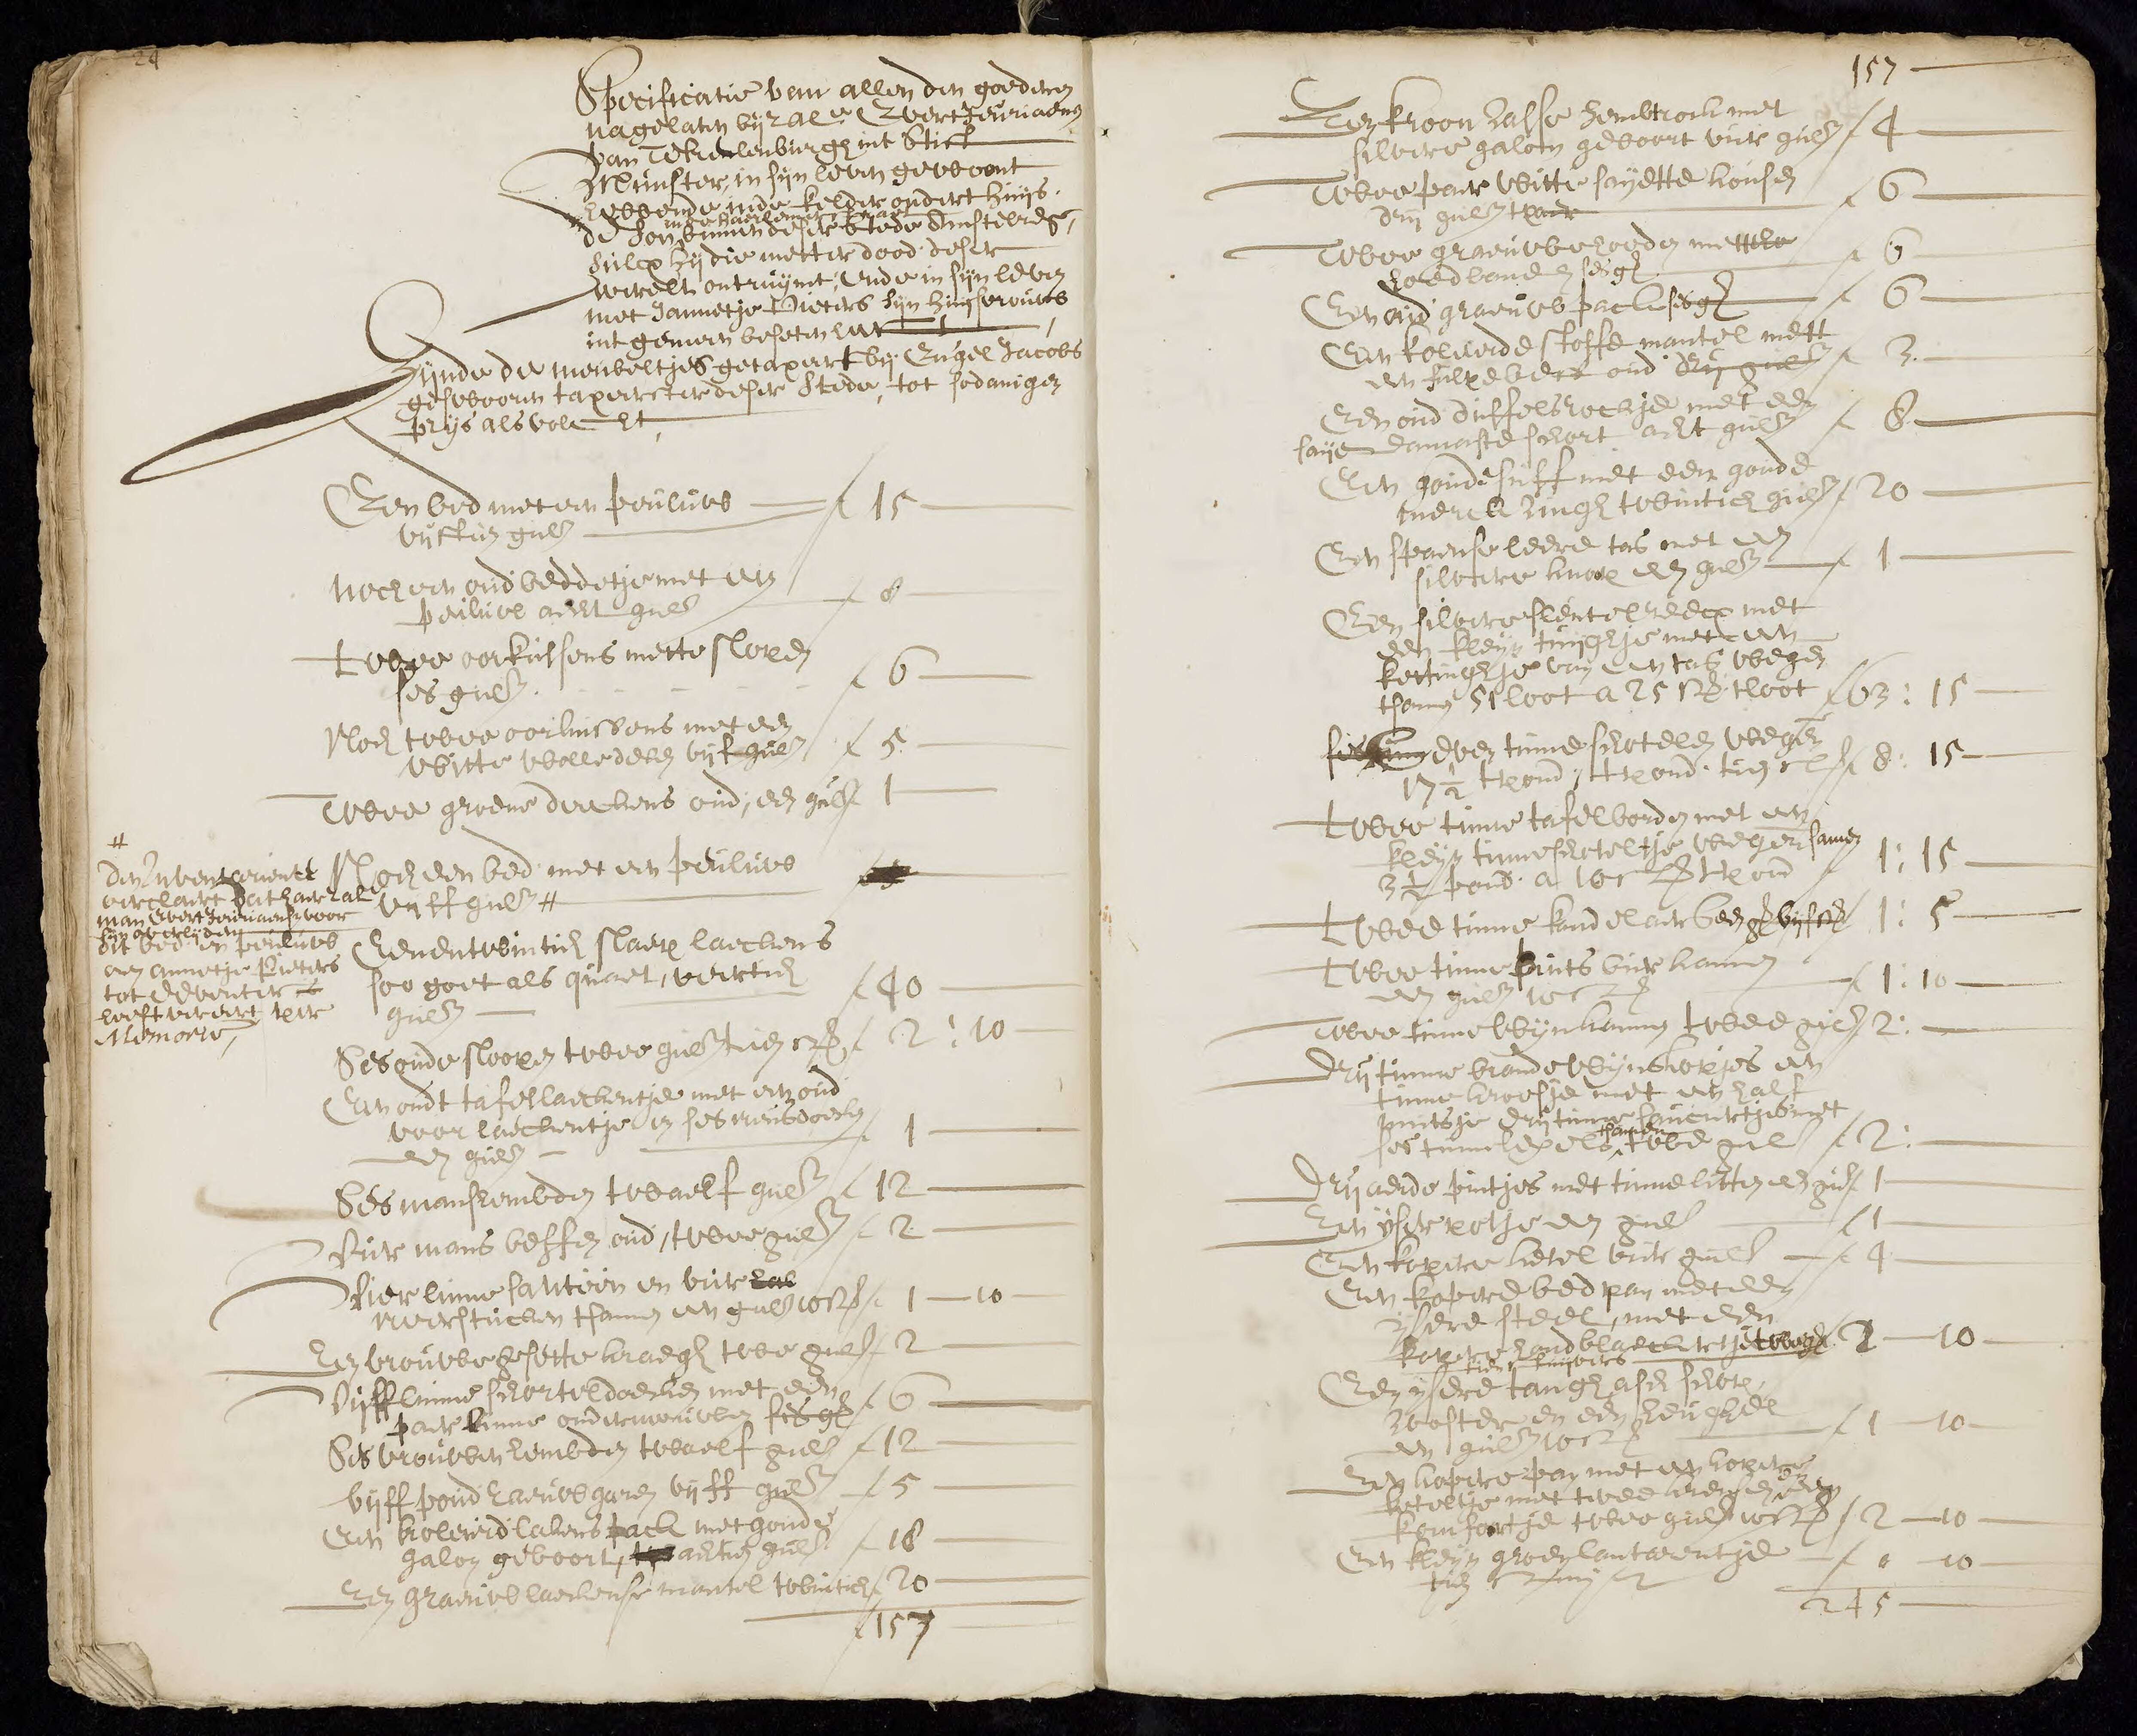 24
Specificatie van allen den goederen
nagelaten bij zal.r Evert Jeuriaens
van Teklenburgh int Stift
Munster, in sijn leven gewoont
hebbende inde kelder ondert huijs
in de haerlemer straet
de Son binnen deser Stede Amsterd.,
sulcx hij die metter dood deser
werelt ontruijmt, ende in sijn leven
met Jannetje Pieters sijn huijsvrouw
int gemeen beseten heeft,
Zijnde de meubeltjes getaxeert bij Engel Jacobs
geswooren taxeerster deser Stede, tot sodanigen
prijs als volcht,
Een bed met een peuluw ƒ 15
vijftien guls
Noch een oud beddetje met een
peuluw acht guls ƒ 8
twee oorkussens mette sloopen
ses guls ƒ 6
Noch twee oorkussens met een
witte wolle deken vijf guls ƒ 5
Twee groene deeckens oud, een guls ƒ 1
Noch een bed met een peuluw
vijff guls #
#
Den Inventariente
verclaert dat haer zal
man Evert Jeuriaensz voor
sijn overlijden
dit bed en peuluw
aen Annetje Pieters
tot Deventer
heeft vereert per
Memorie,
Eenentwintich slaep laeckens
soo goet als quaet, veertich
guls ƒ 40
Ses oude sloopen twee guls tien st ƒ 2 : 10
Een oudt tafellaeckentje met een oud
voor laeckentje en ses neusdoecken
een guls ƒ 1
Ses manshembden twaelf guls ƒ 12
Vier mans beffen oud, twee guls ƒ 2
Vier linne santeen en vier hal
neerstucken tsamen een guls 10 st ƒ 1 10
Een vrouwe gesette kraegh twe guls ƒ 2
Vijff linne schorteldoecken met een
paer linne ondermouwen ses gl ƒ 6
Ses vrouwen hembden twaelf guls ƒ 12
vijff pond haeuw garen vijff guls ƒ 5
Een koleurd lakens pack met goude
galon geboort, achtien guls ƒ 18
Een graeuw laeckense mantel twintich ƒ 20
ƒ 157
157
Een kroon rasse hembtrock met
silvere galon geboort vier guls ƒ 4
Twee paer witte sayette kousen
drij guls tpaer ƒ 6
Twee graeuwe hoeden mette
hoedbanden ses gl ƒ 6
Een oud graeuw pack ses gl ƒ 6
Een koleurde stoffe mantel mett
een oud drij guls ƒ 3
Een oud duffels rockje met een
saije damaste schort acht guls ƒ 8
Een goude met een goude
merck ringh twintich guls ƒ 20
Een spaense leere tas met een
silvere knoop een guls ƒ 1
Een silvere sleutelreecx met
een kleyn tuijghje met een
kettinghje van een tas wegen
tsamen 51 loot a 25 st tloot ƒ 63 : 15
seven tinne schotelen wegen
17 1/2 pond, tpond tien st ƒ 8 : 15
twee tinne tafelborden met een
kleyn tinneschoteltje wegen samen
3 1/2 pond a 10 st tpond 1 : 15
twee tinne kandelaer een gl vijf st 1 : 5
twee tinne pints bierkannen
een guls 10 st 1 : 10
Twee tinne wijnkannen twee guls 2 :
Drij tinne brandewijnskopjes een
tinne kroesje met een half
pintsje drij tinne saucierties met
ses tinne lepels, tsamen twee guls ƒ 2 :
Drij aerde pintjes met tinne litten een guls 1
Een ijser potje een guls ƒ 1
Een kopere ketel vier guls ƒ 4
Een kopere bedpan met een
ijsere steel, met een
kopere handblaeckertje twee gl 2 10
tien stuijvers
Een ijsere tangh asch schop
rooster en een heugel
een guls 10 st ƒ 1 10
Een kopere pan met een kopere
keteltje met twee en een
komfoortje twee guls 10 st ƒ 2 10
Een kleyn groen lantaerentje ƒ 0 10
245